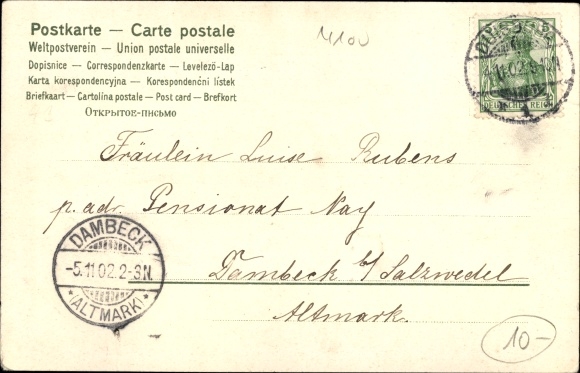 Postkarte — Carte postale
Weltpostverein — Union postale universelle
Dopisnice — Correspondenzkarte — Levelező-Lap
Karta korespondencyjna — Korespondenční lístek
Briefkaart — Cartolina postale — Post card — Brefkort
Открытое-письмо
4100
DUISBURG
02.9-10N
1
DEUTSCHES REICH
Fräulein Luise Rubens
p. adr. Pensionat Nay
Dambeck b/ Salzwedel
Altmark.
DAMBECK
-5.11.02.2-3N.
*(ALTMARK)*
10-